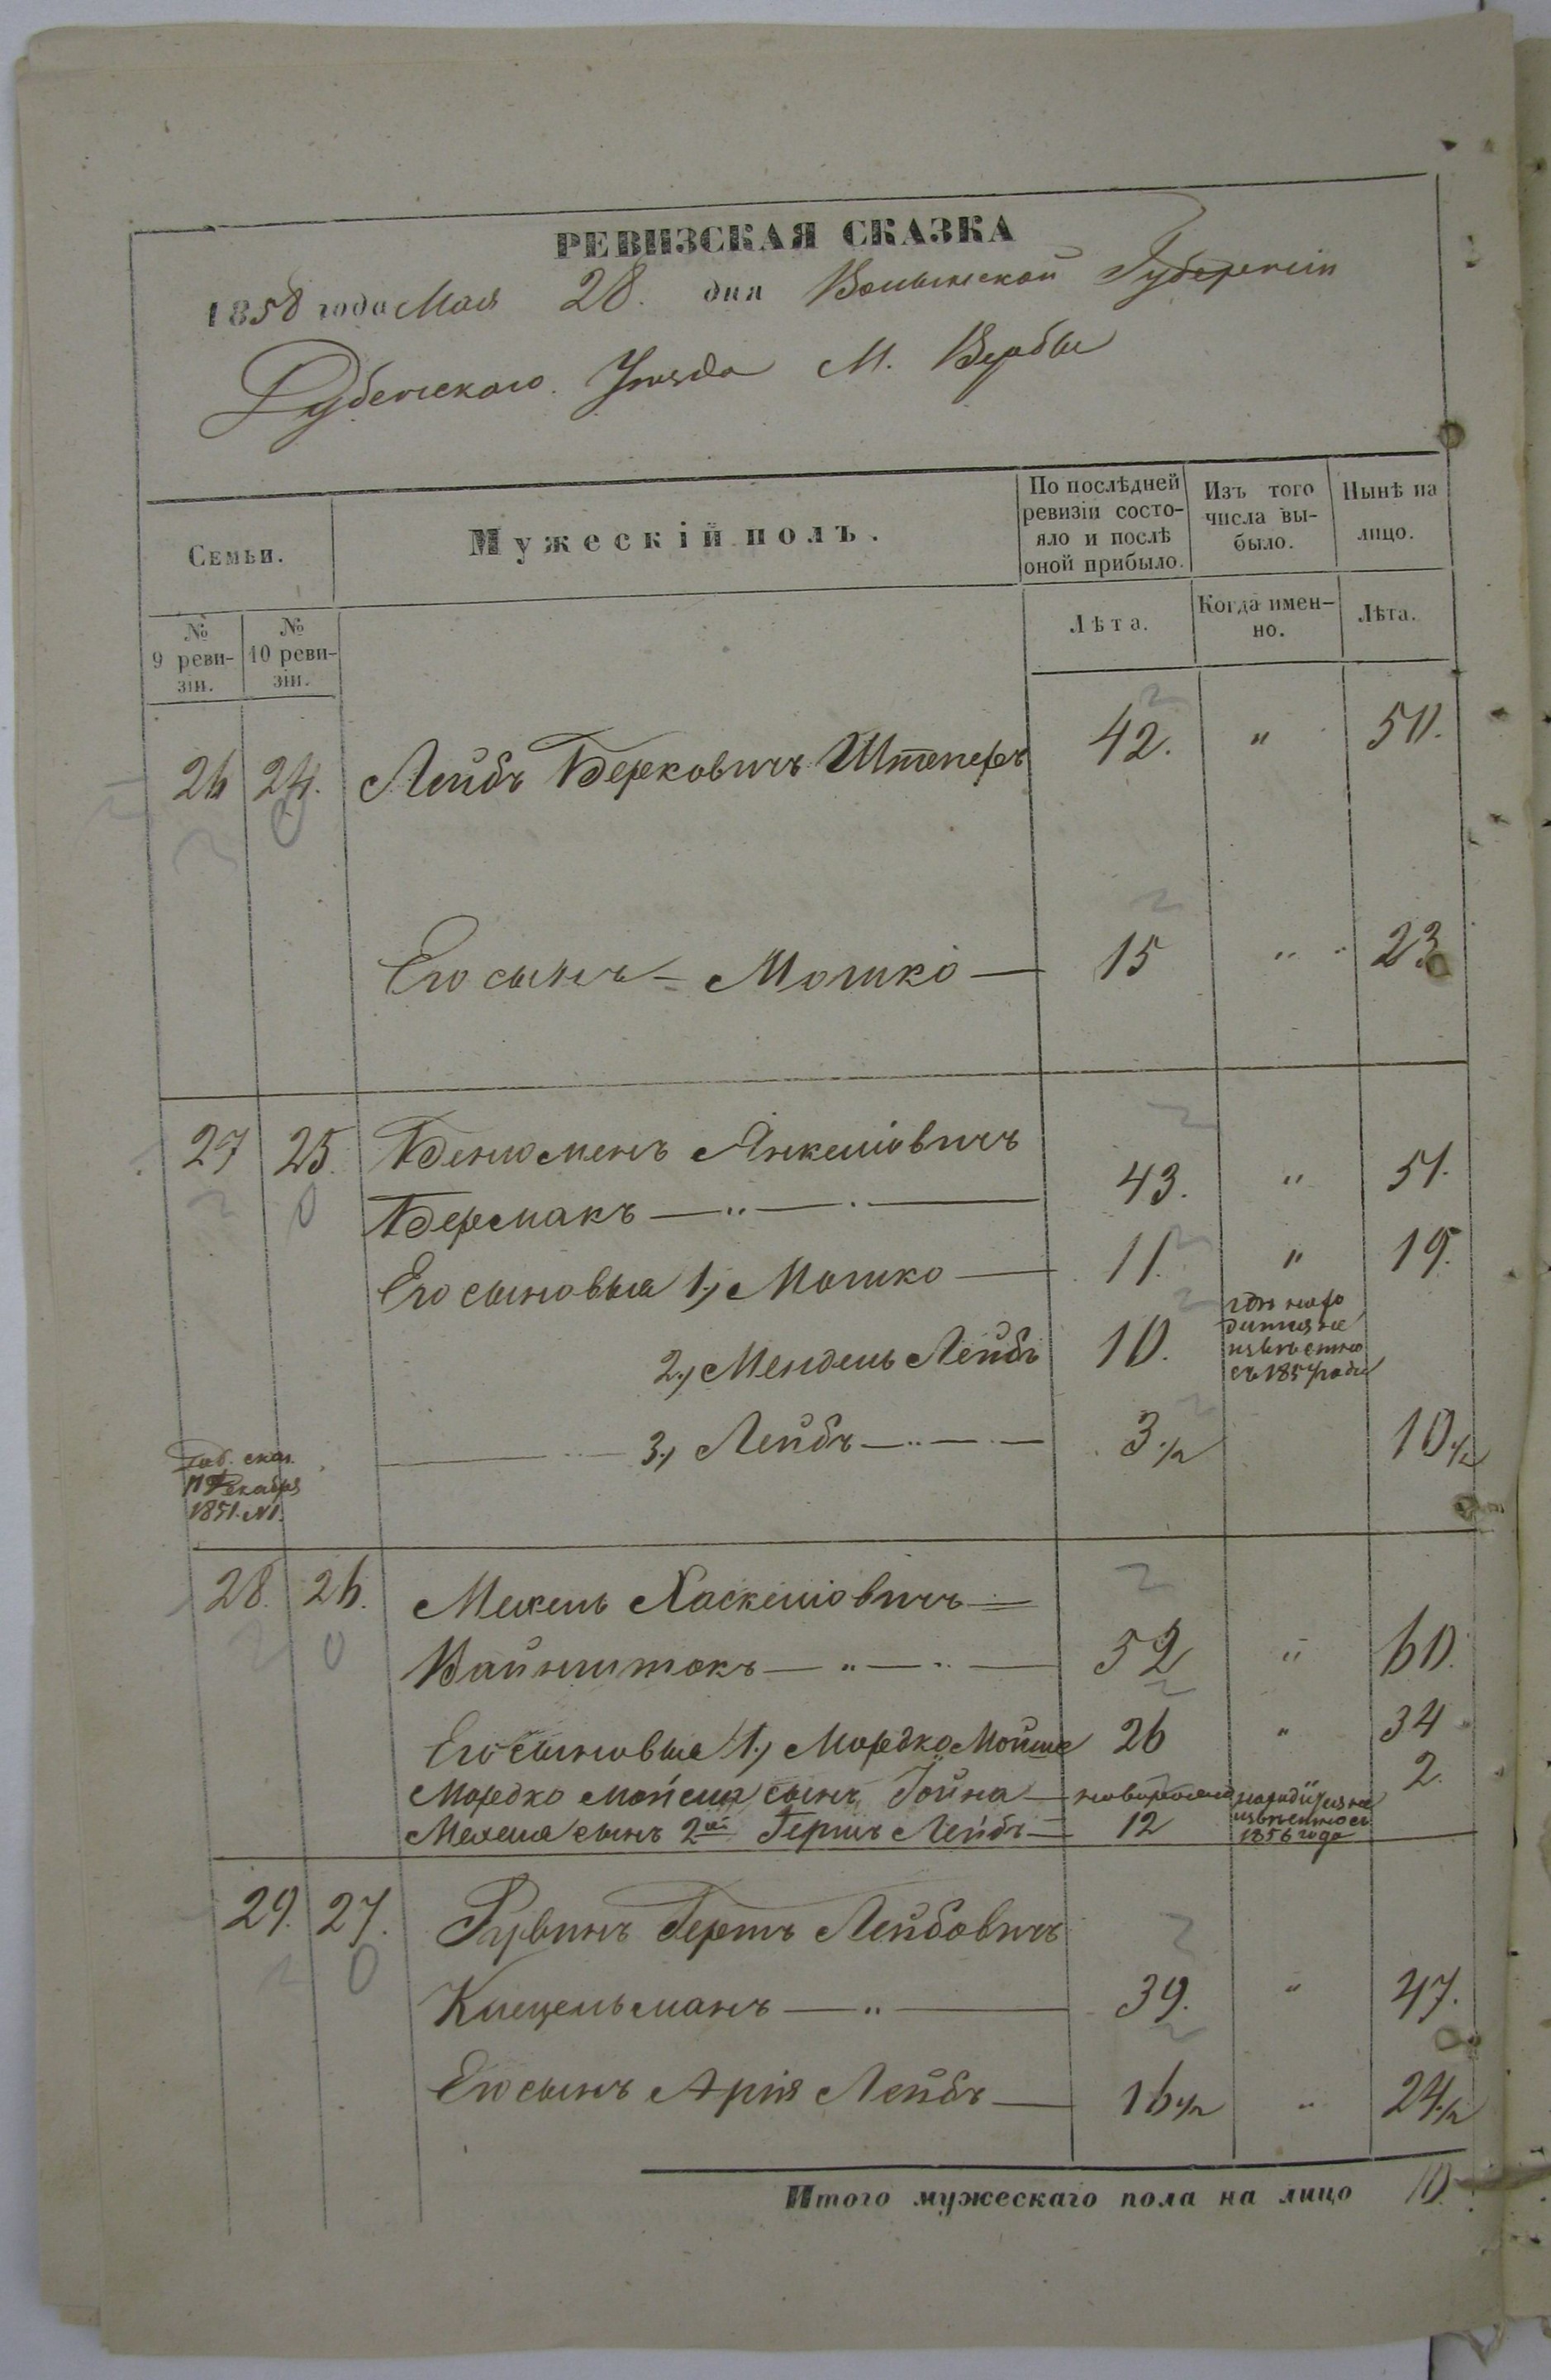 РЕВИЗСКАЯ СКАЗКА
1858 года Мая 28. дня Волынской Губернии
Дубенского Уезда М. Вербы
Семьи.
Мужескій полъ.
По послѣдней ревизіи состо-
яло и послѣ
оной прибыло.
Изъ того
числа вы-
было.
Нынѣ на
лицо.
№
9 реви-
зіи.
№
10 реви-
зіи.
Лѣта.
Когда имен-
но.
Лѣта.
26 24. Лейбъ Берковичъ Штеперъ 42. " 50.
Его сынъ – Мошко — 15 " 23
27 25. Бенюменъ Янкеліовичъ
Бермакъ — " — 43. " 51.
Его сыновья 1., Мошко — 11. " 19.
2., Мендель Лейбъ 10.
съ 1854 года
3., Лейбъ — " — 3 ½ 10 ½
Декабря
1851. №1.
28. 26. Мехель Хаскеліовичъ
Вайнштокъ — " — 52 " 60.
Его сыновья 1., Мордко Мойше 26 " 34
Мордко Мойсея сынъ Іойна — 2.
Мехеля сынъ 2й Гершъ Лейбъ — 12
1856 года
29. 27. Рувинъ Гершъ Лейбовичъ
Клецельманъ — " — 39. " 47.
Его сынъ Арія Лейбъ — 16 ½ " 24 ½
Итого мужескаго пола на лицо 10.